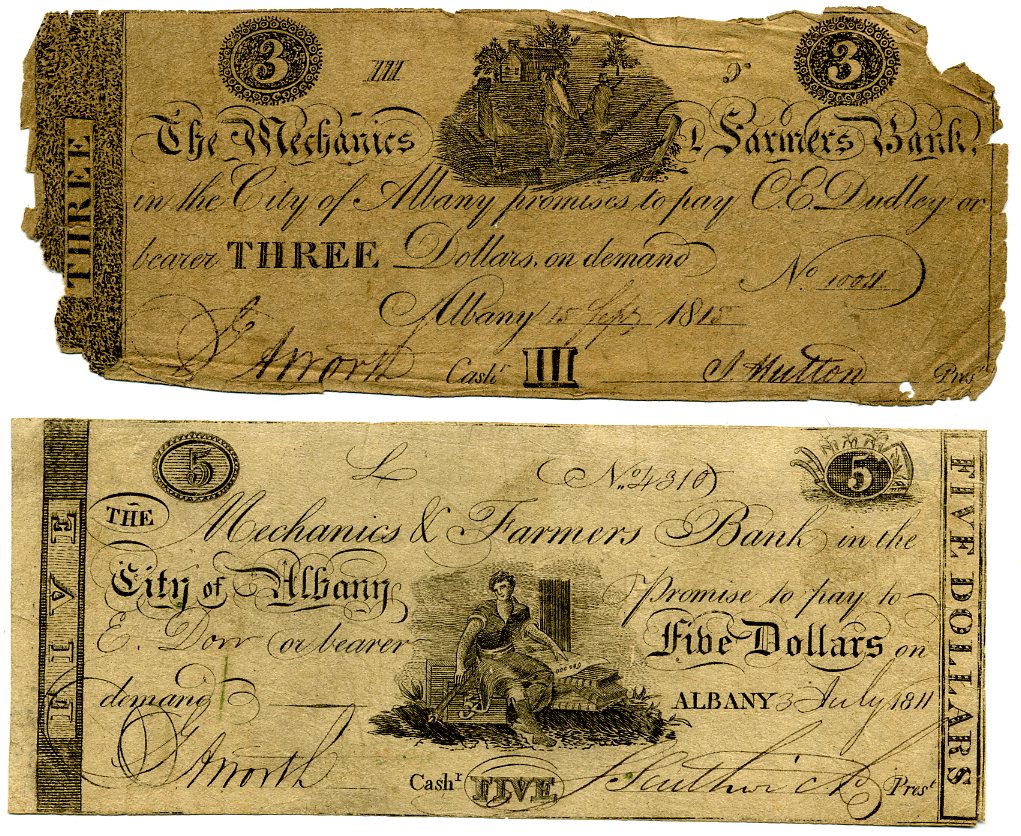 3 III 3
THREE
The Mechanics & Farmers Bank,
in the City of Albany promises to pay C.E. Dudley or
bearer THREE Dollars, on demand No 1004
Albany 15 Sept 1815
G A Worth Cashr III S. Hutton Prest
5 No. 4310 5
FIVE
FIVE DOLLARS
THE Mechanics & Farmers Bank in the
City of Albany Promise to pay to
E. Dow or bearer Five Dollars on
demand ALBANY 3 July 1811
G A Worth Cashr FIVE S Southwick Prest